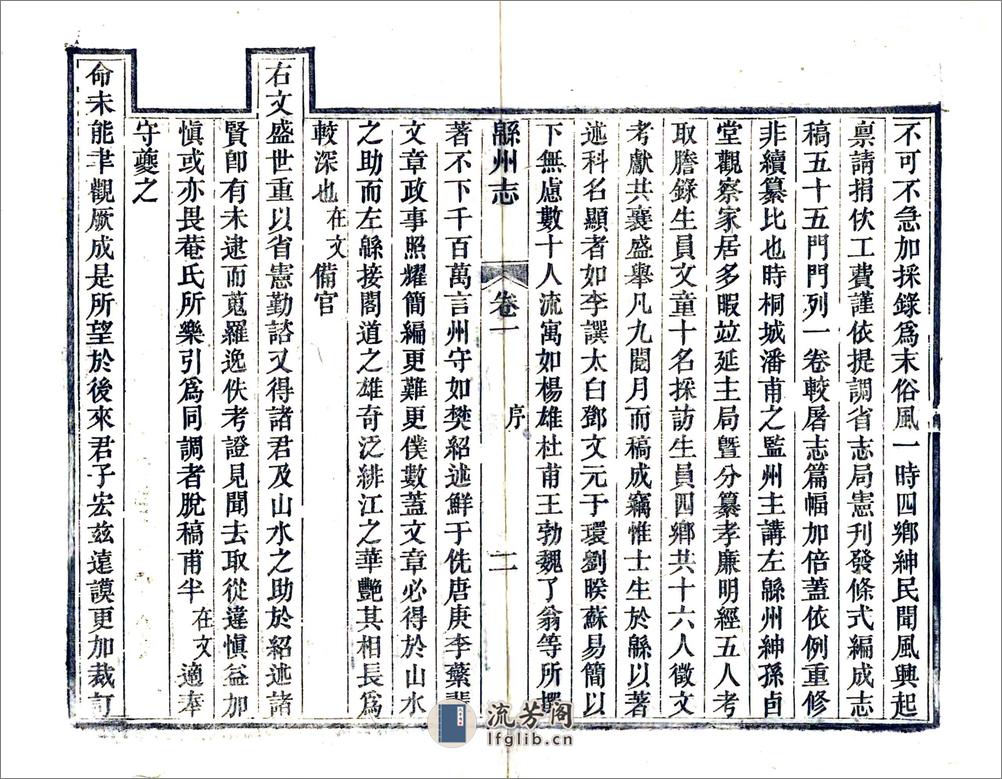 不可不急加採錄爲末俗風一時四鄉紳民聞風興起
稟請捐伙工費謹依提調省志局憲刊發條式編成志
稿五十五門門列一卷較屠志篇幅加倍蓋依例重修
非續纂比也時桐城潘甫之監州主講左緜州紳孫卣
堂觀察家居多暇竝延主局曁分纂孝廉明經五人考
取謄錄生員文童十名採訪生員四鄉共十六人徵文
考獻共襄盛舉凡九閱月而稿成竊惟士生於緜以著
述科名顯者如李譔太白鄧文元于環劉暌蘇易簡以
下無慮數十人流寓如楊雄杜甫王勃魏了翁等所撰
緜州志 卷一 序 二
著不下千百萬言州守如樊紹述鮮于侁唐庚李蘩輩
文章政事照耀簡編更難更僕數蓋文章必得於山水
之助而左緜接閣道之雄奇泛緋江之華艷其相長爲
較深也在文備官
右文盛世重以省憲勤諮又得諸君及山水之助於紹述諸
賢卽有未逮而蒐羅逸佚考證見聞去取從違愼益加
愼或亦畏菴氏所樂引爲同調者脫稿甫半在文適奉
守夔之
命未能聿觀厥成是所望於後來君子宏茲遠謨更加裁訂
流芳阁
lfglib.cn